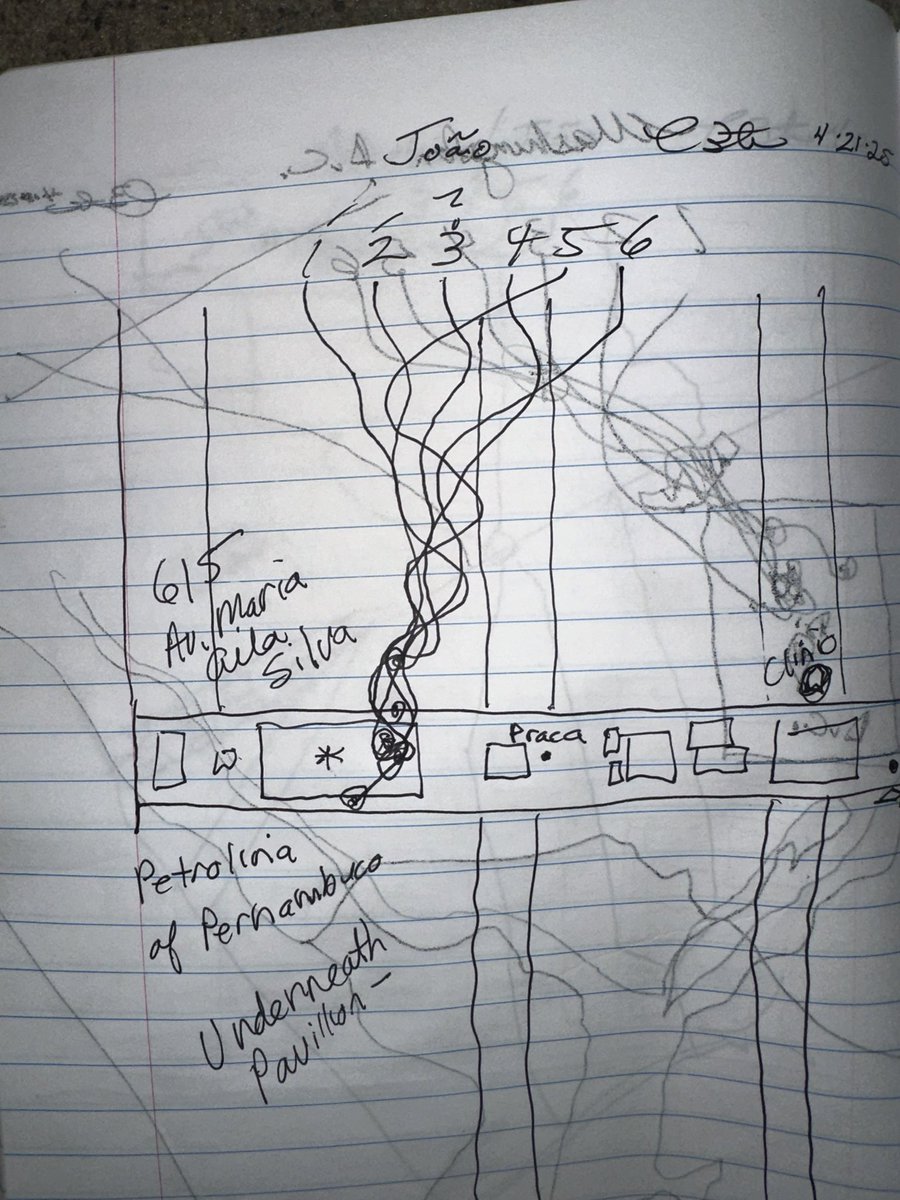 João 4·21·25
1 2 3 4 5 6
615
Av. Maria
Silva
Clino
Praca
Petrolina
of Pernambuco
Underneath
Pavillion-